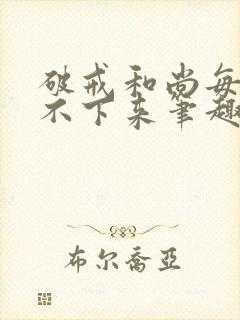 破戒和尚每
不下来笔趣
布尔乔亚